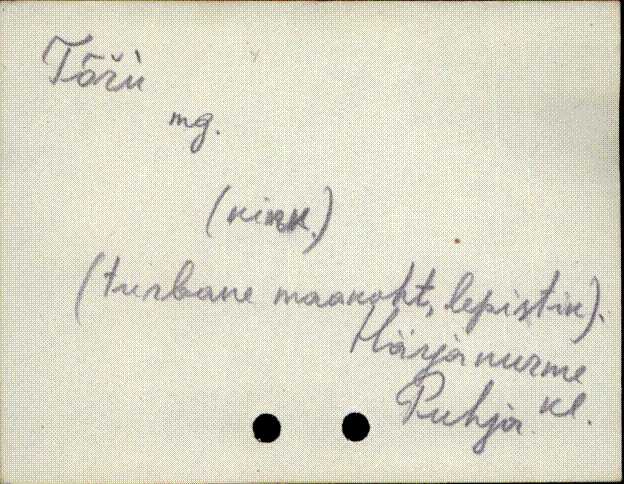 Tõrù
mg.
(kink.)
(turbane maakoht, lepistik).
Härjanurme
Puhja kl.